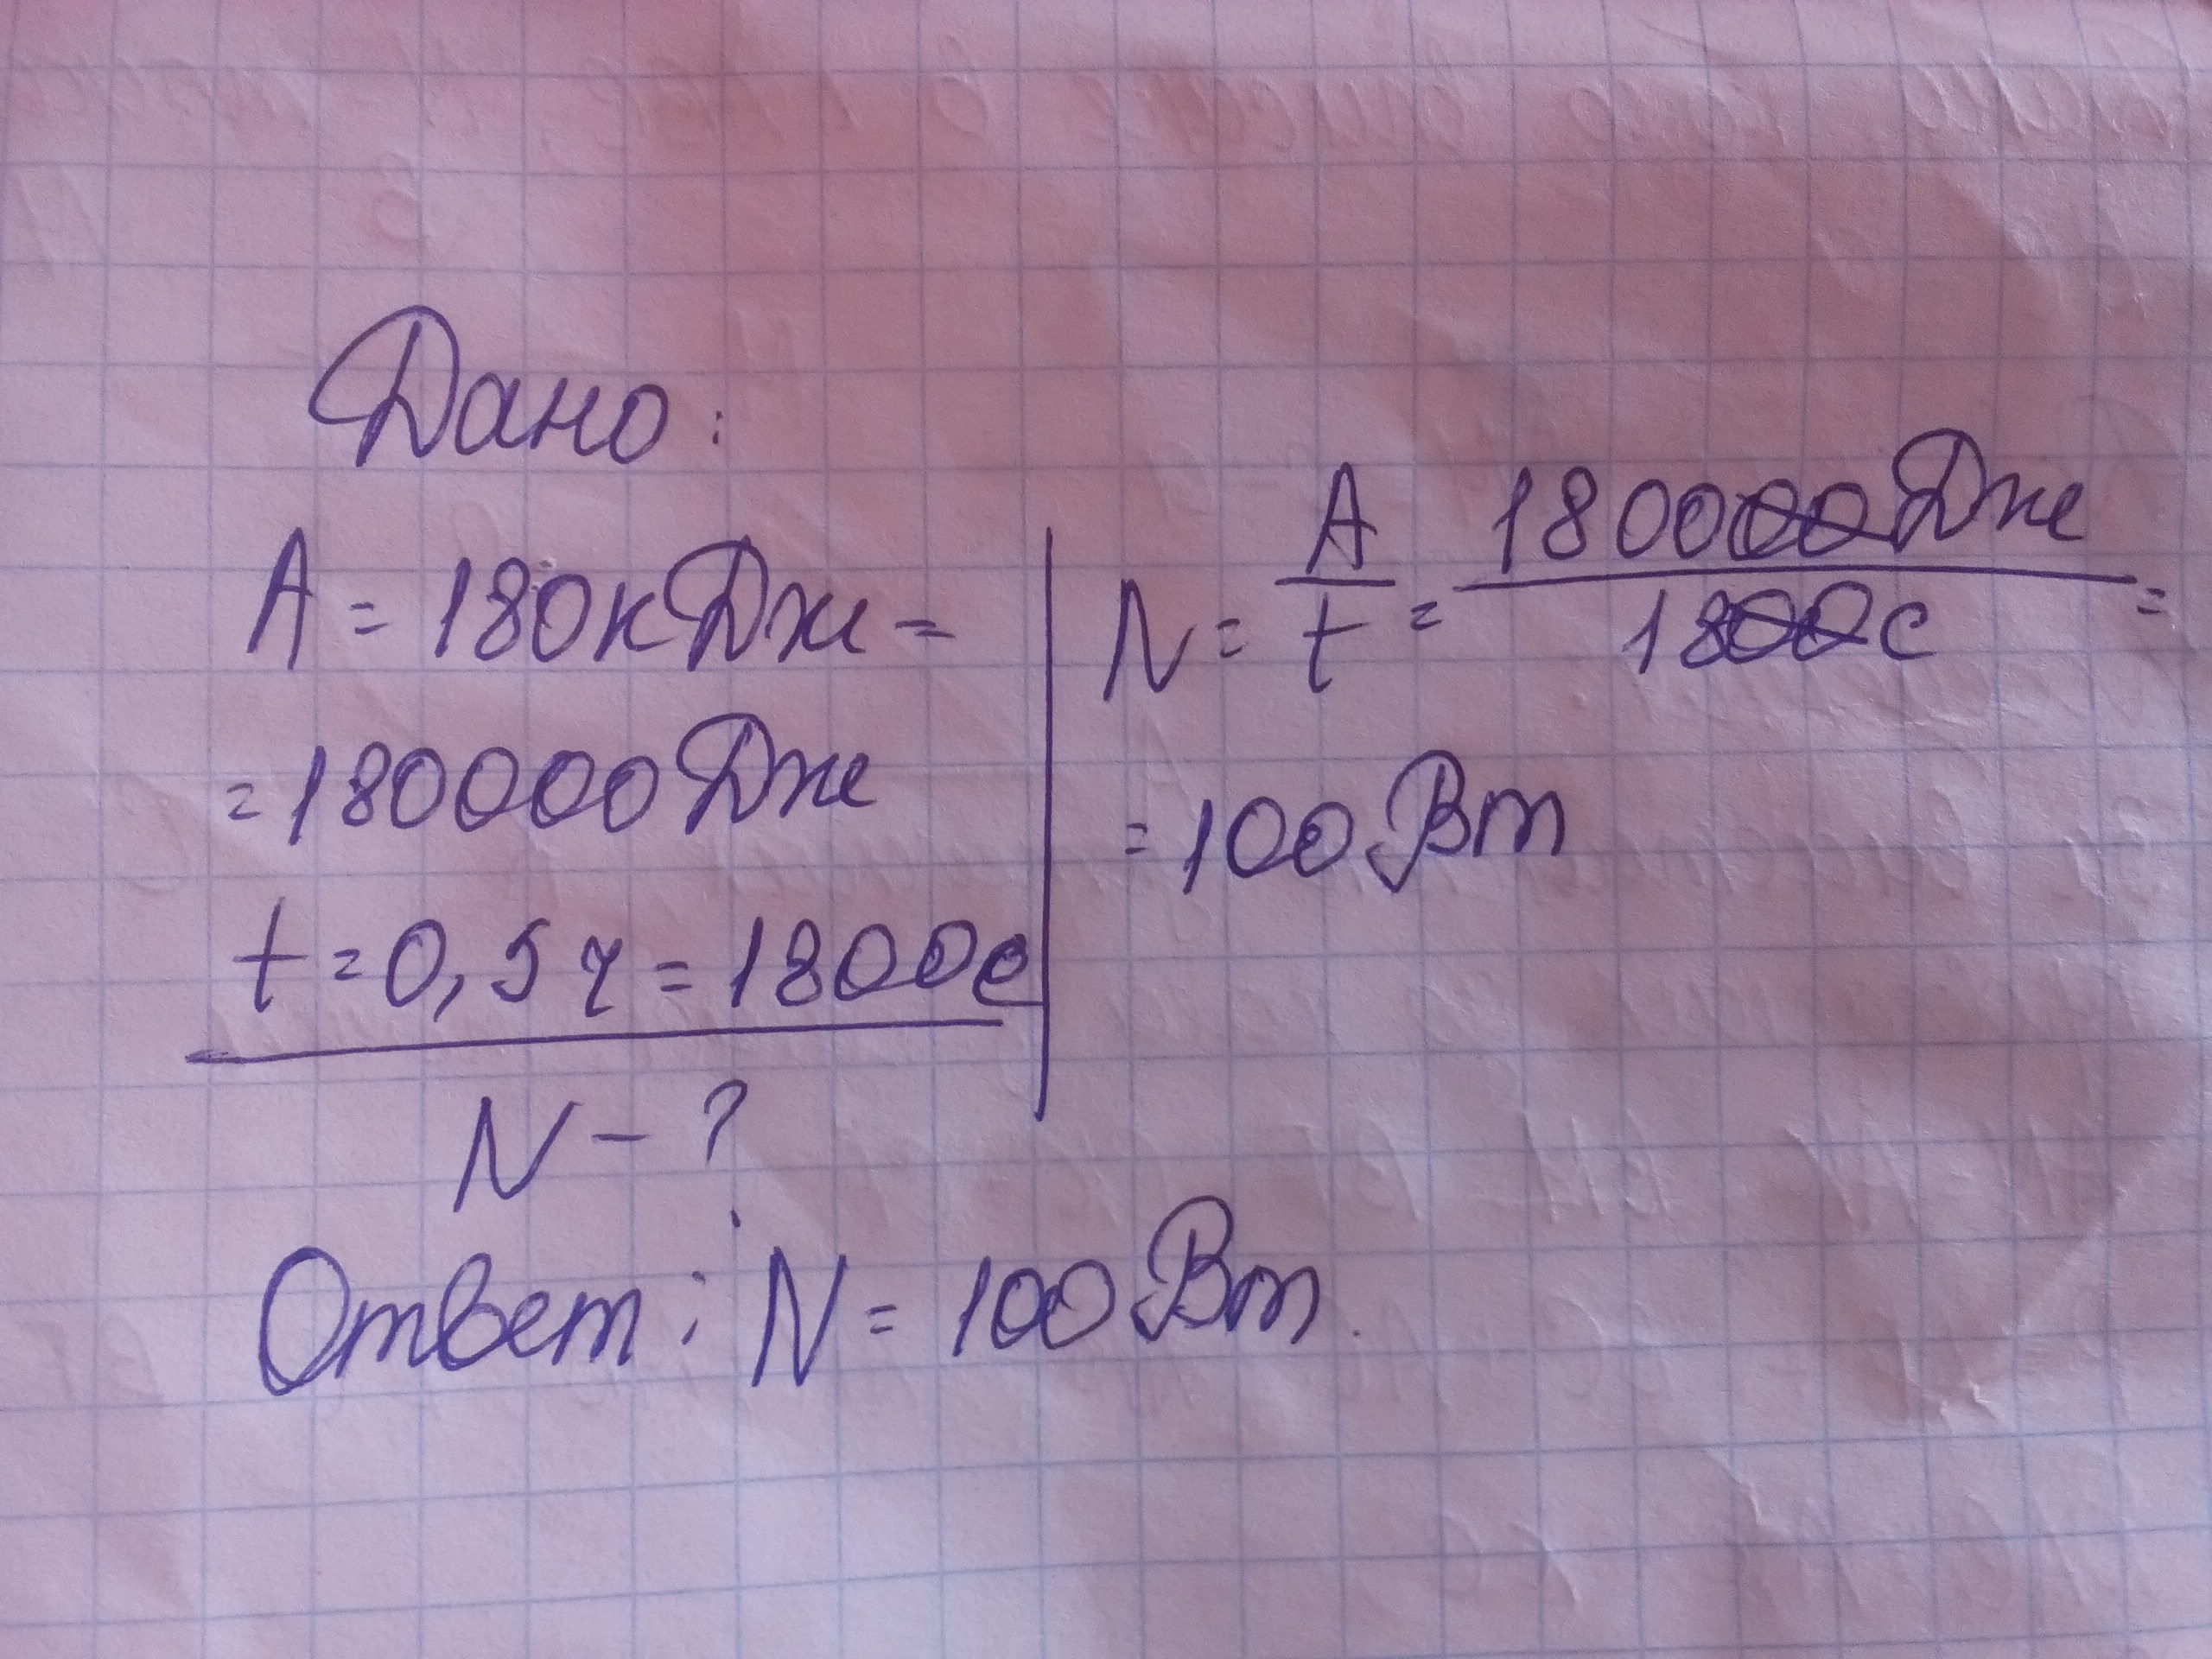 Дано:
A = 180кДж =
= 180000Дж
t = 0,5ч = 1800с
N - ?
N = A/t = 180000Дж/1800с =
= 100Вт
Ответ: N = 100Вт.